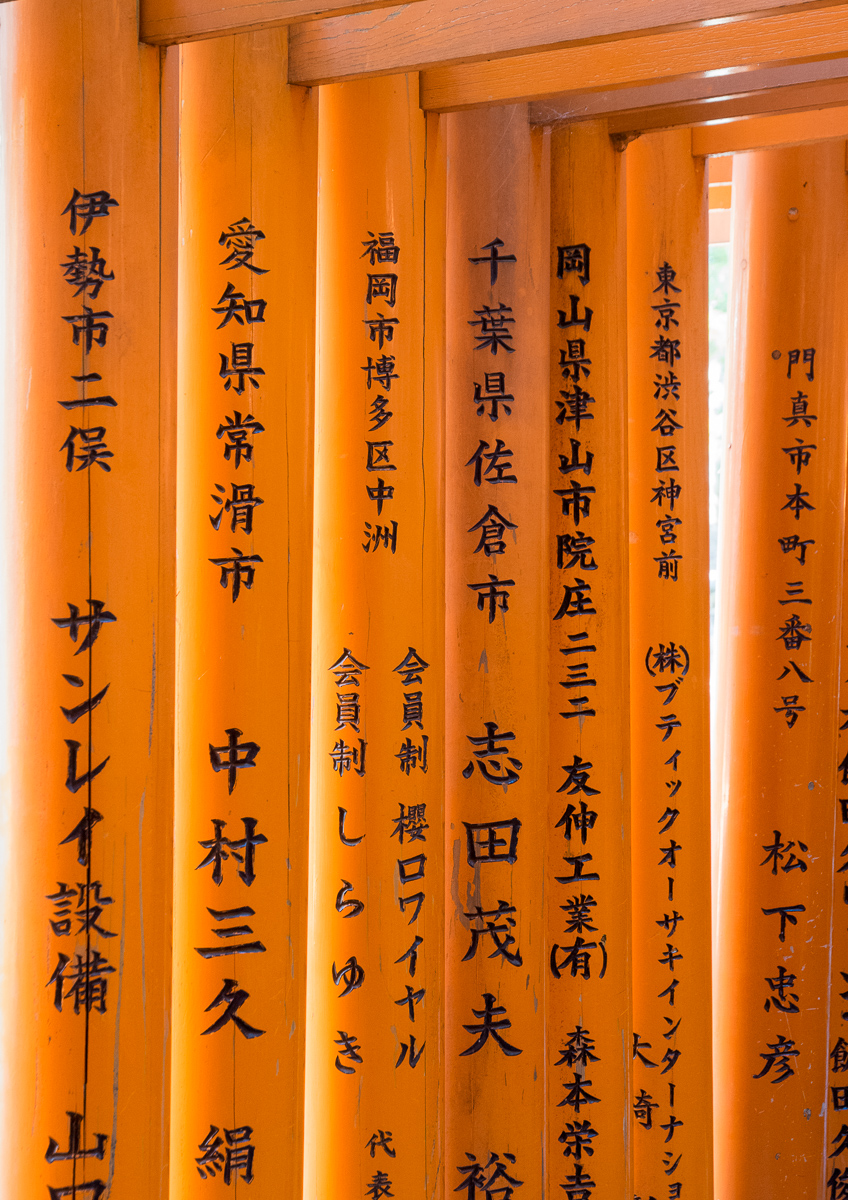 伊勢市二俣 サンレイ設備 山口
愛知県常滑市 中村三久 絹
福岡市博多区中洲
会員制 櫻ロワイヤル
会員制 しらゆき
代表
千葉県佐倉市 志田茂夫 裕
岡山県津山市院庄二三二 友伸工業(有) 森本栄吉
東京都渋谷区神宮前 (株)ブティックオーサキインターナショ
大崎
門真市本町三番八号 松下忠彦
飯田久俊